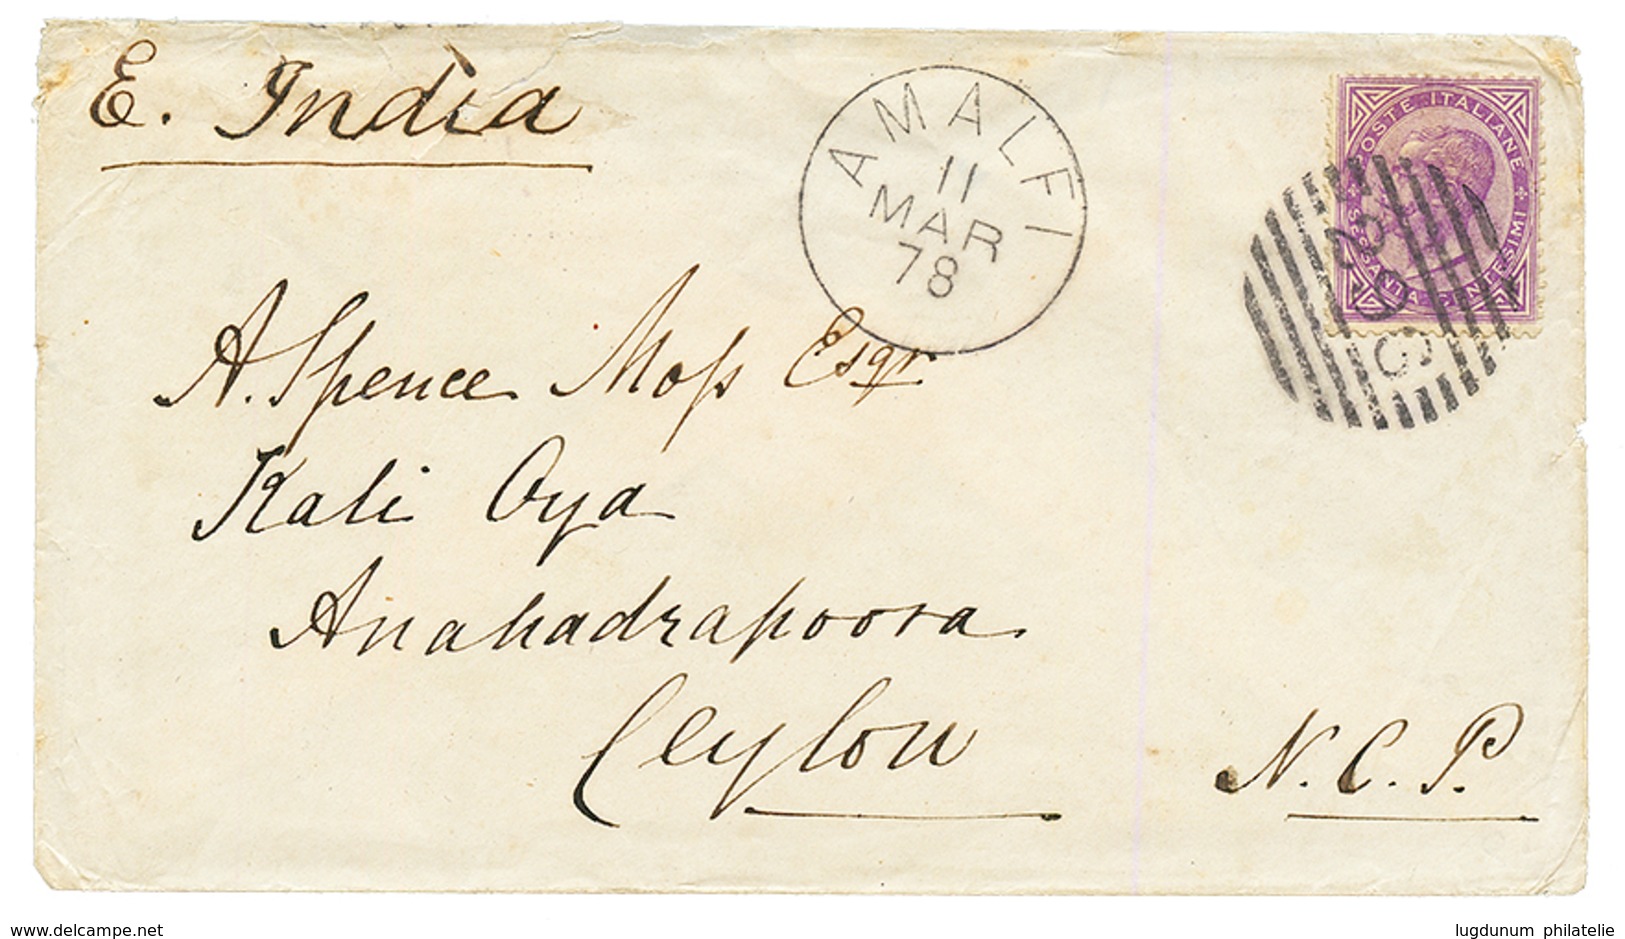 E. India
AMALFI
11
MAR
78
POSTE ITALIANE
SESSANTA CENTESIMI
A. Spence Moſs Esqr
Kali Oya
Anahadrapoora
Ceylon
N. C. P.
delcampe.net
lugdunum philatelie